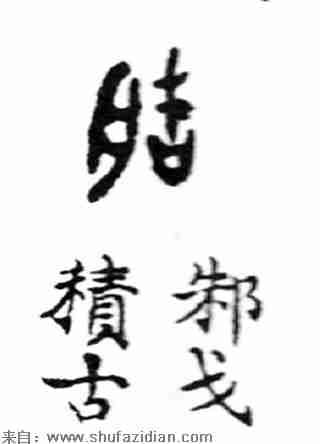 邾戈
積古
来自：www.shufazidian.com